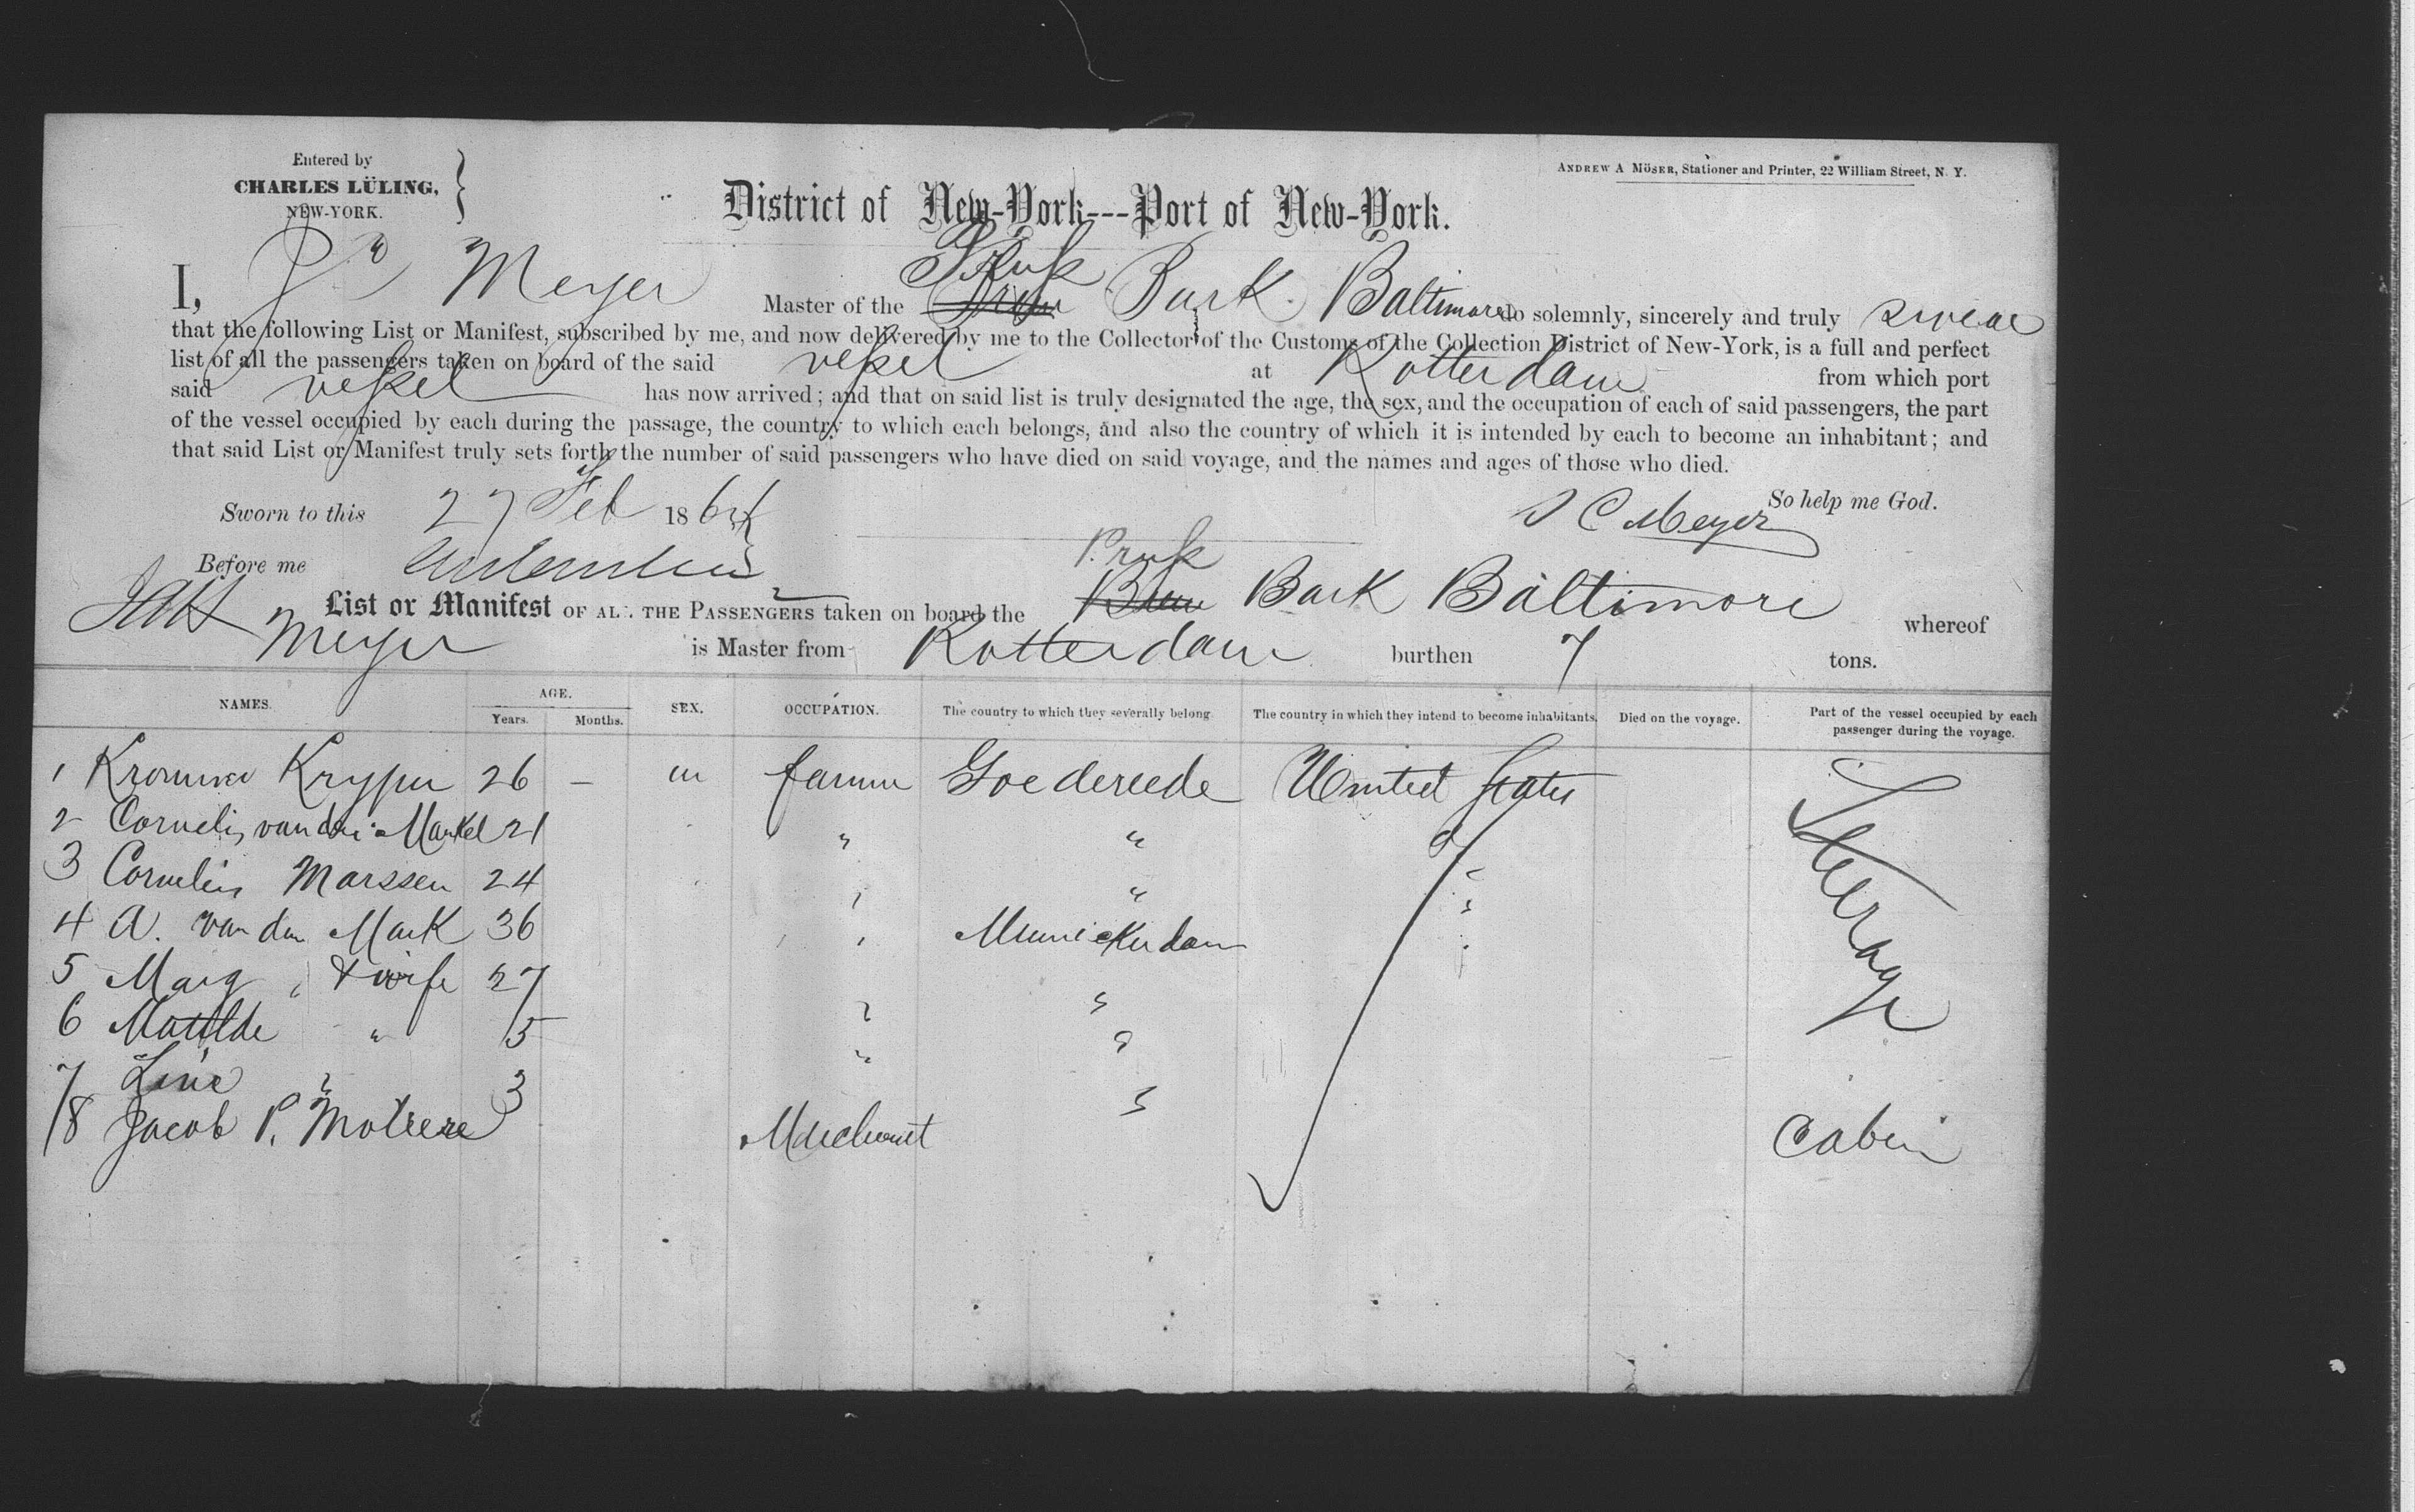 Entered by
CHARLES LÜLING,
NEW-YORK.
ANDREW A MÖSER, Stationer and Printer, 22 William Street, N. Y.
District of New-York---Port of New-York.
I, Meyer Master of the Pruss Bark Baltimore do solemnly, sincerely and truly swear
that the following List or Manifest, subscribed by me, and now delivered by me to the Collector of the Customs of the Collection District of New-York, is a full and perfect
list of all the passengers taken on board of the said vessel at Rotterdam from which port
said vessel has now arrived; and that on said list is truly designated the age, the sex, and the occupation of each of said passengers, the part
of the vessel occupied by each during the passage, the country to which each belongs, and also the country of which it is intended by each to become an inhabitant; and
that said List or Manifest truly sets forth the number of said passengers who have died on said voyage, and the names and ages of those who died.
So help me God.
Sworn to this 27 Feb 186
J C Meyer
Before me
List or Manifest OF ALL THE PASSENGERS taken on board the Pruss Bark Baltimore whereof
Meyer is Master from Rotterdam burthen 7 tons.
NAMES. AGE. Years. Months. SEX. OCCUPATION. The country to which they severally belong The country in which they intend to become inhabitants. Died on the voyage. Part of the vessel occupied by each passenger during the voyage.
1 26 – m farmer Goedereede United States Steerage
2 Cornelis van der Markel 21 " "
3 Cornelis Marssen 24 " "
4 A. van den Mark 36 " Munickendam "
5 Marg " & wife 27 "
6 Matilde " 5 " "
7 Line " 3 " "
8 Jacob P. Motrere Merchant " Cabin